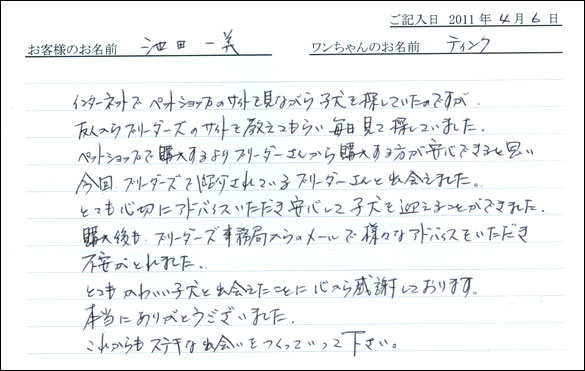 ご記入日 2011年4月6日
お客様のお名前 池田 一美 ワンちゃんのお名前 ティンク
インターネットで ペットショップのサイトを見ながら子犬を探していたのですが、
友人からブリーダーズのサイトを教えてもらい毎日見て探していました。
ペットショップで購入するよりブリーダーさんから購入する方が安心できると思い
今回、ブリーダーズで紹介されているブリーダーさんと出会えました。
とても心切にアドバイスいただき安心して子犬を迎えることができました。
購入後も、ブリーダーズ事務局からのメールで様々なアドバイスをいただき
不安がとれました。
とてもかわいい子犬と出会えたことに心から感謝しております。
本当にありがとうございました。
これからもステキな出会いをつくっていって下さい。